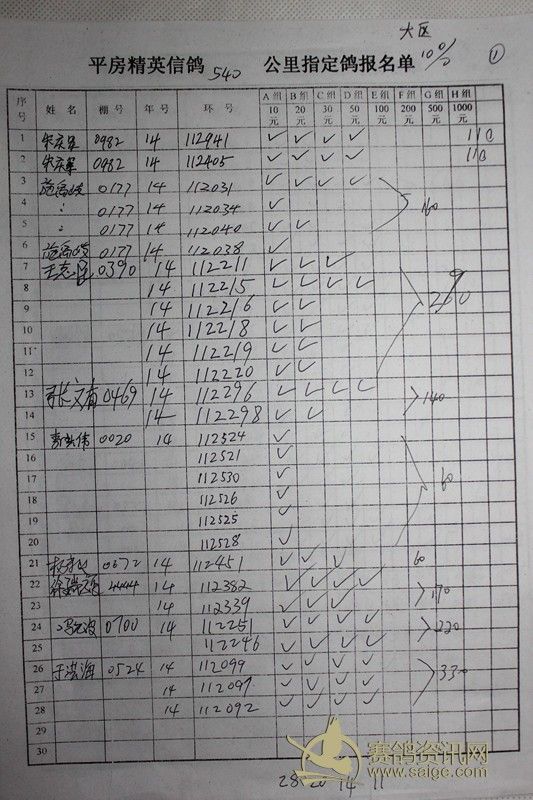 大区
平房精英信鸽 540 公里指定鸽报名单 10% ①
序号 姓名 棚号 年号 环号 A组10元 B组20元 C组30元 D组50元 E组100元 F组200元 G组500元 H组1000元
1 0982 14 112941 ✓ ✓ ✓ ✓ 110
2 0982 14 112405 ✓ ✓ ✓ ✓ 110
3 0177 14 112031 ✓ ✓ ✓ ✓
4 0177 14 112034 ✓ 160
5 0177 14 112040 ✓ ✓
6 0177 14 112038 ✓
7 0390 14 112211 ✓ ✓ ✓
8 14 112215 ✓ ✓ ✓ ✓
9 14 112216 ✓ ✓
10 14 112218 ✓ ✓
11 14 112219 ✓ ✓
12 14 112220 ✓ ✓
13 0469 14 112296 ✓ ✓ ✓ ✓
14 14 112298 ✓ ✓ 140
15 0020 14 112524 ✓
16 112521 ✓
17 112530 ✓ 60
18 112526 ✓
19 112525 ✓
20 112528 ✓
21 0072 14 112451 ✓ ✓ ✓ 60
22 4444 14 112382 ✓ ✓ ✓ ✓
23 14 112339 ✓ ✓ ✓ 170
24 0700 14 112251 ✓ ✓ ✓ ✓ 220
25 112246 ✓ ✓ ✓ ✓
26 于洪海 0524 14 112099 ✓ ✓ ✓ ✓
27 14 112097 ✓ ✓ ✓ ✓ 330
28 14 112092 ✓ ✓ ✓ ✓
29
30
28 20 14 11
赛鸽资讯网
www.saige.com